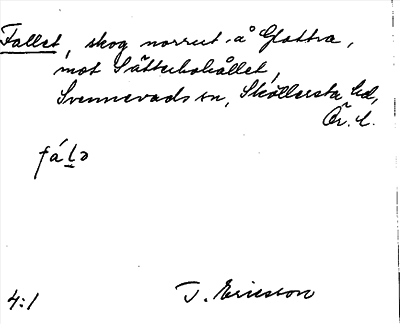 Fallet, skog norrut å Glottra,
mot Sätterbohållet,
Svennevads sn, Sköllersta hd,
Ör. l.
fáḻꝺ
4:1
T. Ericsson